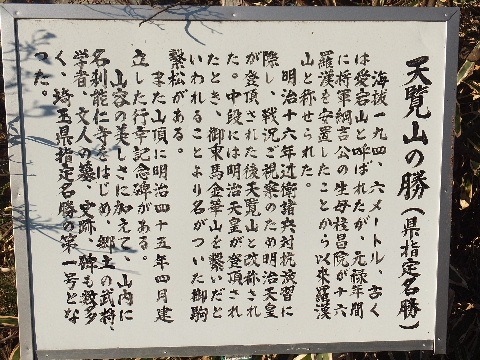 天覧山の勝（県指定名勝）
海抜一九四、六メートル、古く
は愛宕山と呼ばれたが、元禄年間
に将軍綱吉公の生母桂昌院が十六
羅漢を安置したことから以来羅漢
山と称せられた。
明治十六年近衛諸兵対抗演習に
際し、戦況ご視察のため明治天皇
が登頂された後天覧山と改称され
た。中段には明治天皇が登頂され
たとき、御乗馬金華山を繋いだと
いわれることより名がついた御駒
繋松がある。
また山頂に明治四十五年四月建
立した行幸記念碑がある。
山容の美しさに加えて、山内に
名刹能仁寺をはじめ、郷土の武将、
学者、文人の墓、史跡、碑も数多
く、埼玉県指定名勝の第一号とな
った。